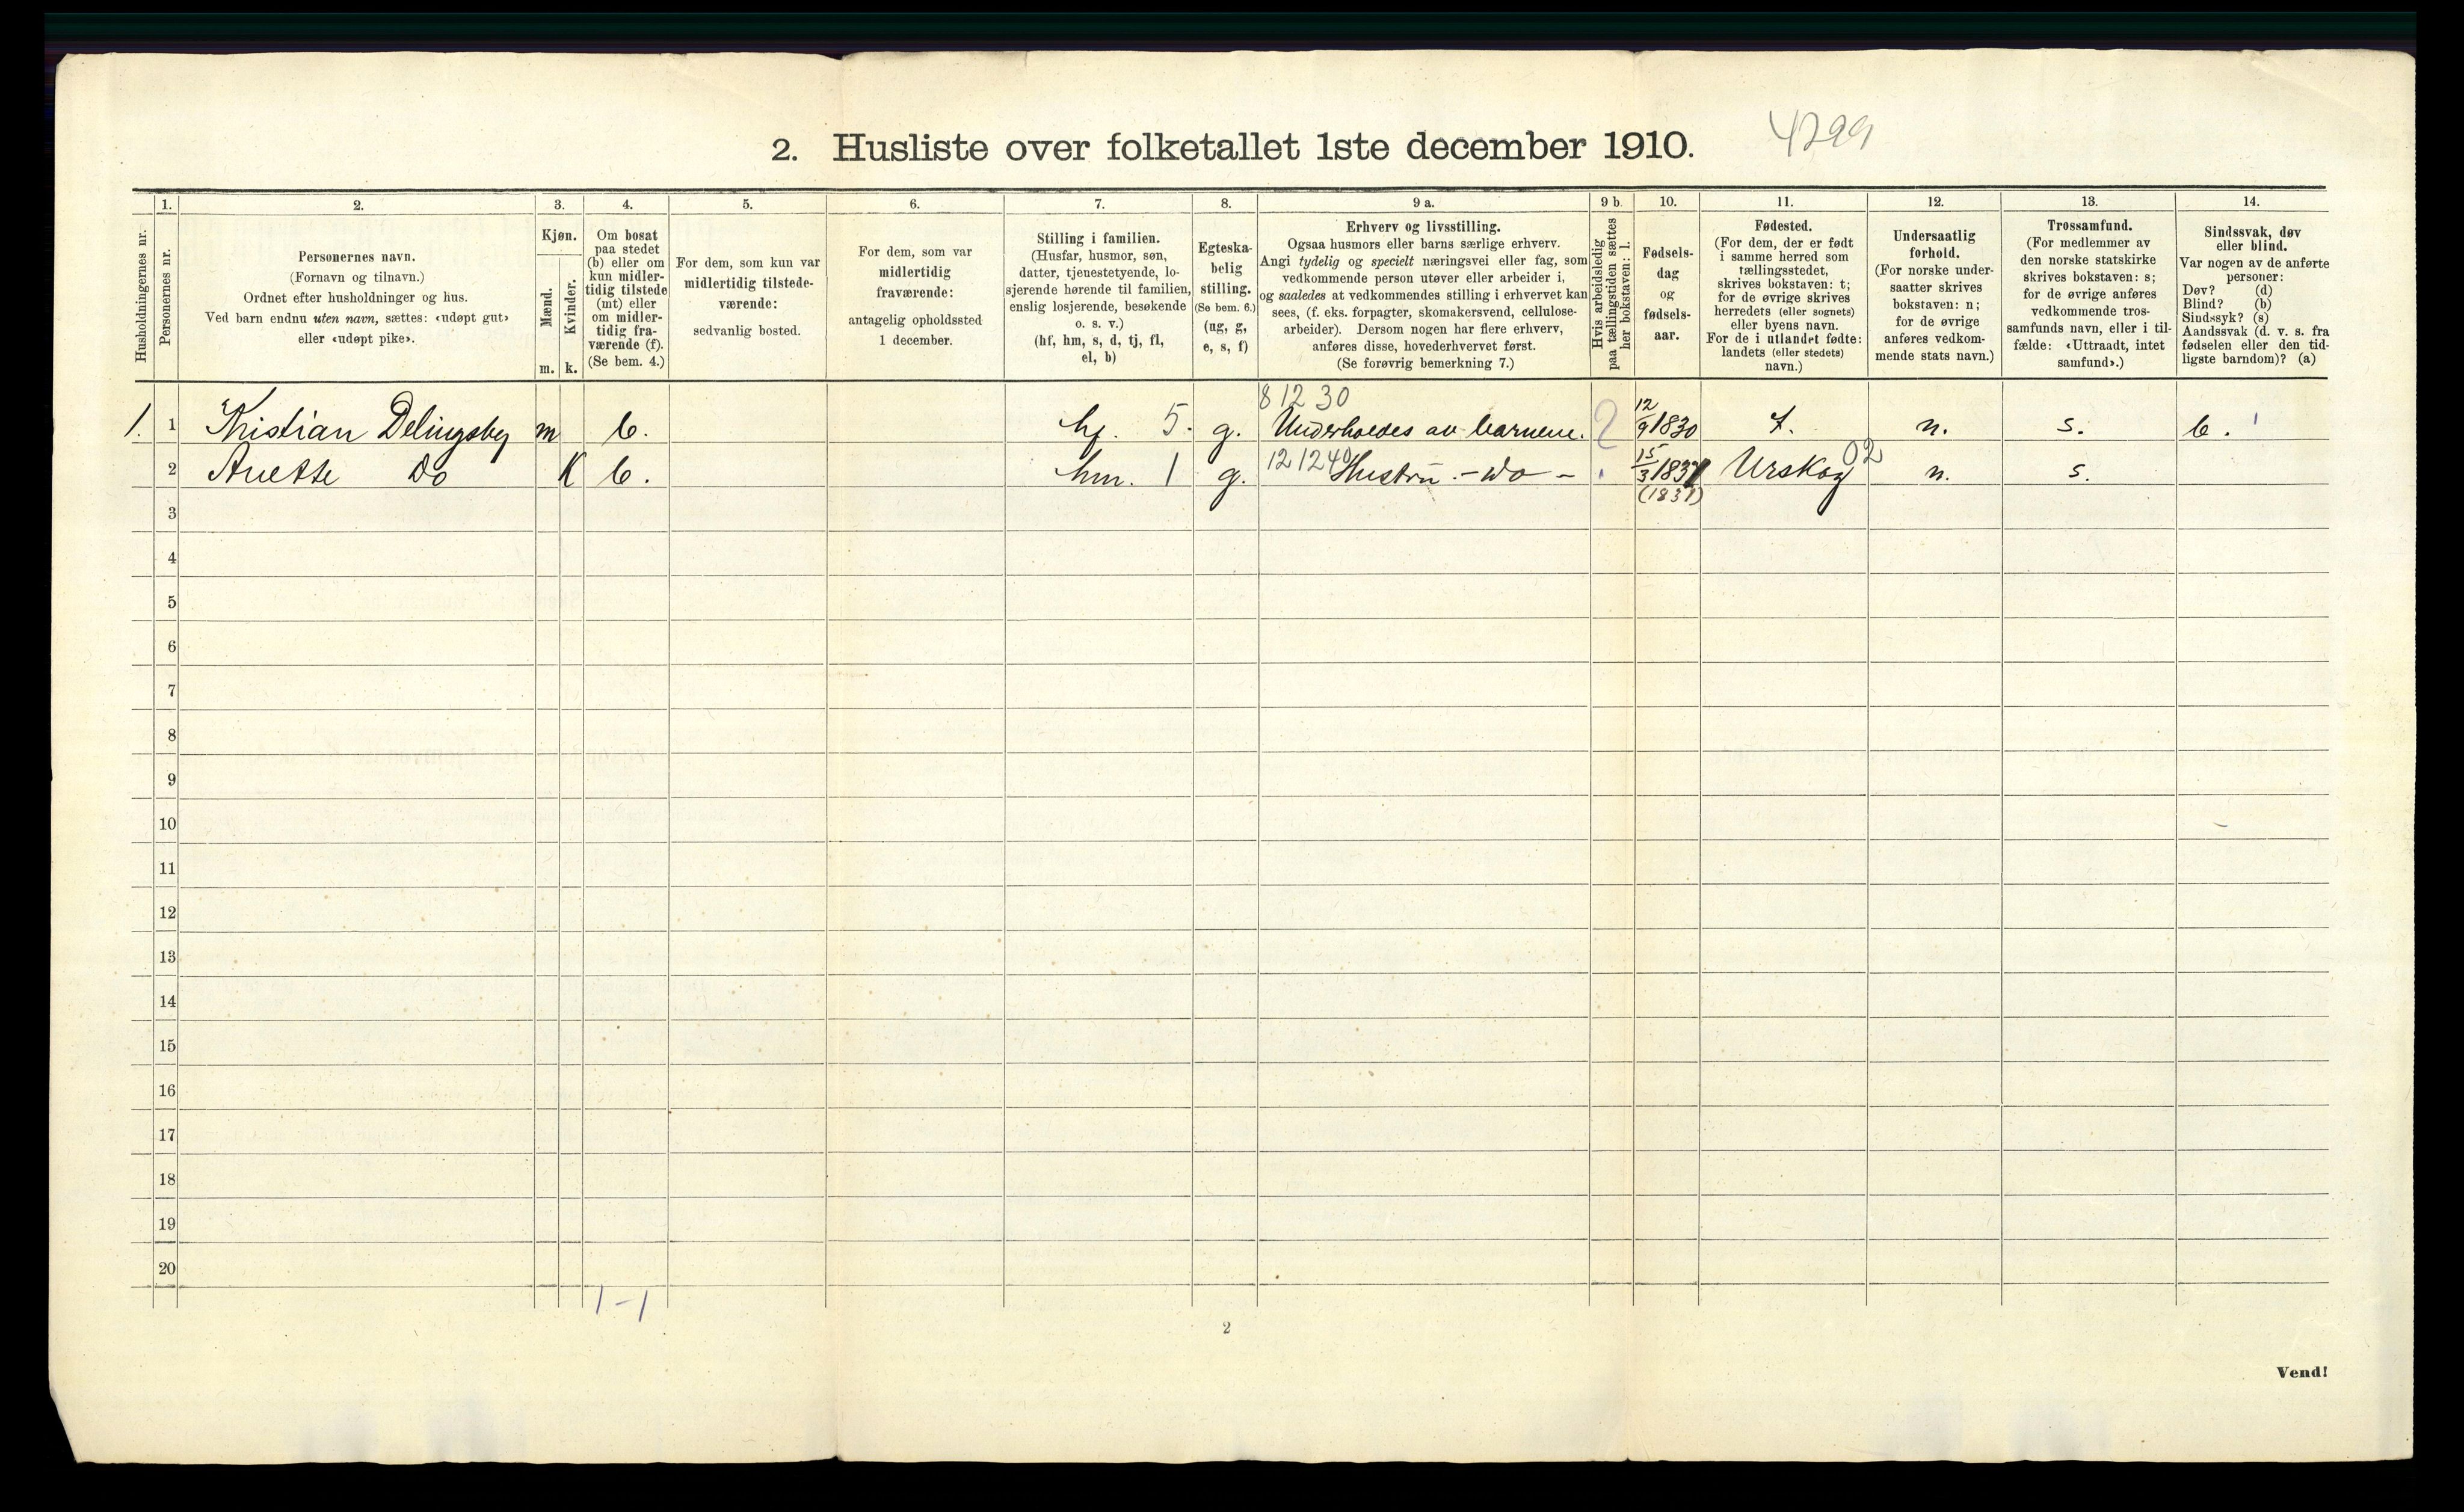 2. Husliste over folketallet 1ste december 1910.
4299
Husholdningernes nr.
1.
Personernes nr.
2.
Personernes navn.
(Fornavn og tilnavn.)
Ordnet efter husholdninger og hus.
Ved barn endnu uten navn, sættes: «udøpt gut»
eller «udøpt pike».
3.
Kjøn.
Mænd.
Kvinder.
m. k.
4.
Om bosat
paa stedet
(b) eller om
kun midler-
tidig tilstede
(mt) eller
om midler-
tidig fra-
værende (f).
(Se bem. 4.)
5.
For dem, som kun var
midlertidig tilstede-
værende:
sedvanlig bosted.
6.
For dem, som var
midlertidig
fraværende:
antagelig opholdssted
1 december.
7.
Stilling i familien.
(Husfar, husmor, søn,
datter, tjenestetyende, lo-
sjerende hørende til familien,
enslig losjerende, besøkende
o. s. v.)
(hf, hm, s, d, tj, fl,
el, b)
8.
Egteska-
belig
stilling.
(Se bem. 6.)
(ug, g,
e, s, f)
9 a.
Erhverv og livsstilling.
Ogsaa husmors eller barns særlige erhverv.
Angi tydelig og specielt næringsvei eller fag, som
vedkommende person utøver eller arbeider i,
og saaledes at vedkommendes stilling i erhvervet kan
sees, (f. eks. forpagter, skomakersvend, cellulose-
arbeider). Dersom nogen har flere erhverv,
anføres disse, hovederhvervet først.
(Se forøvrig bemerkning 7.)
9 b.
Hvis arbeidsledig
paa tællingstiden sættes
her bokstaven: l.
10.
Fødsels-
dag
og
fødsels-
aar.
11.
Fødested.
(For dem, der er født
i samme herred som
tællingsstedet,
skrives bokstaven: t;
for de øvrige skrives
herredets (eller sognets)
eller byens navn.
For de i utlandet fødte:
landets (eller stedets)
navn.)
12.
Undersaatlig
forhold.
(For norske under-
saatter skrives
bokstaven: n;
for de øvrige
anføres vedkom-
mende stats navn.)
13.
Trossamfund.
(For medlemmer av
den norske statskirke
skrives bokstaven: s;
for de øvrige anføres
vedkommende tros-
samfunds navn, eller i til-
fælde: «Uttraadt, intet
samfund».)
14.
Sindssvak, døv
eller blind.
Var nogen av de anførte
personer:
Døv? (d)
Blind? (b)
Sindssyk? (s)
Aandssvak (d. v. s. fra
fødselen eller den tid-
ligste barndom)? (a)
8 12 30
1. 1 Kristian Delingsby m b. hf. 5. g. Underholdes av barnene. 2 12/9 1830 t. n. s. b. 1
2 Anette Do K b. hm. 1 g. 12 1240 Hustru - Do - 15/3 1831 Urskog 02 n. s.
(1831)
3
4
5
6
7
8
9
10
11
12
13
14
15
16
17
18
19
20
1 - 1
2
Vend!